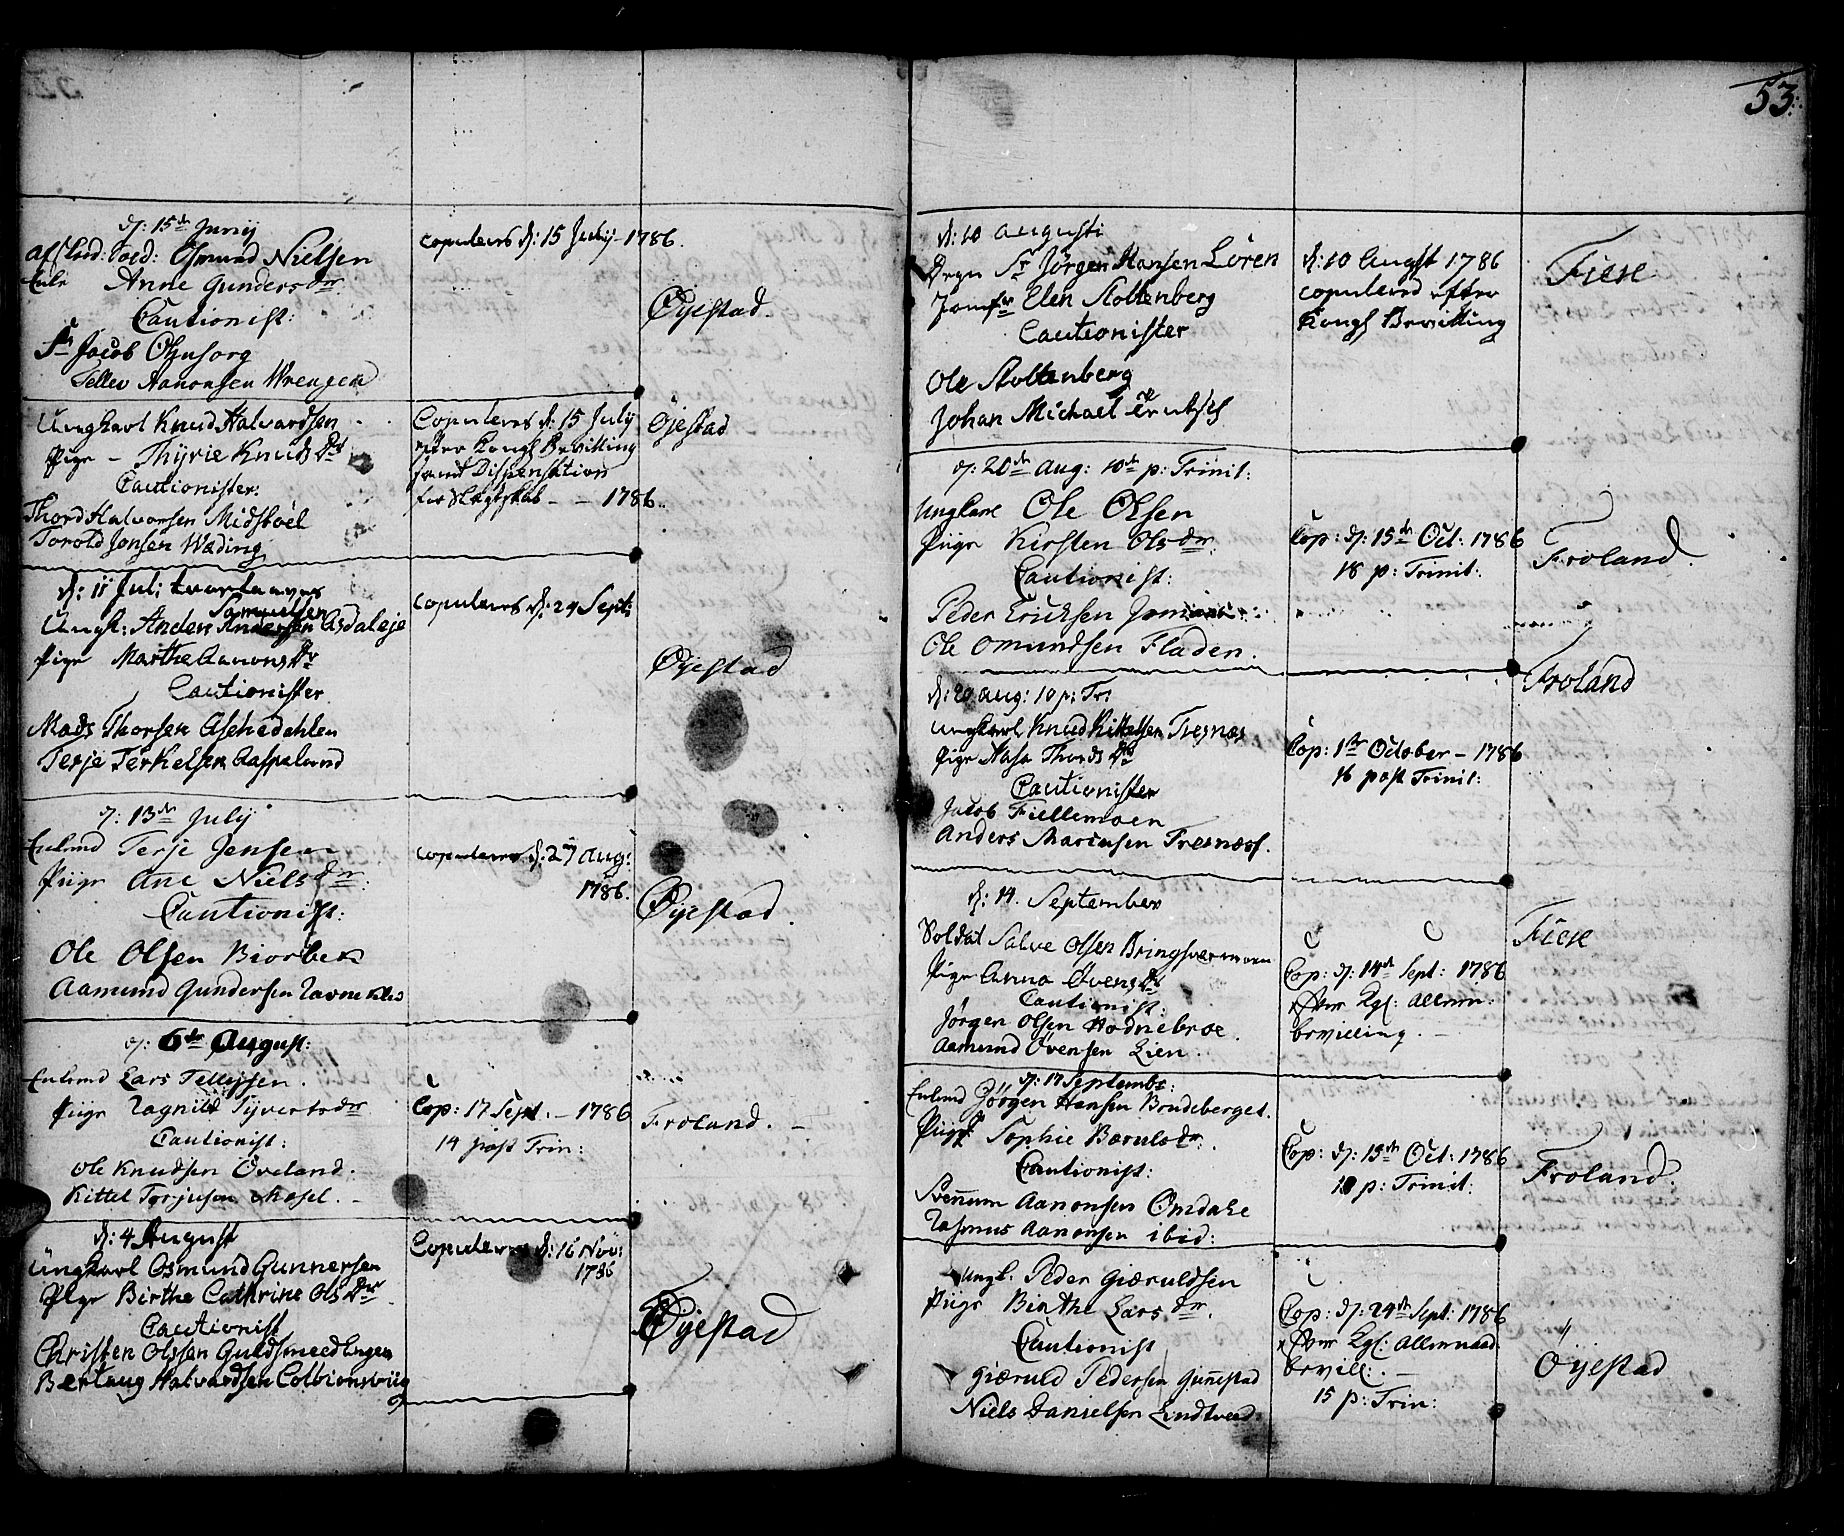 53.
d: 15de Junij
Afskeed: Sold: Osmund Nielsen
Enke Anne Gundersdr
Cautionist:
Sr Jacob Ohnsorg
Tellev Aanonsen Wrengen
copuleres d: 15 July 1786.
Øyestad.
Ungkarl Knud Halvardsen
Pige - Thyrie KnudsDr
Cautionister:
Thord Halvorsen Midtbøel
Torold Jonsen Wæding
Copuleres d: 15 July
efter Kongl Bevilling
samt Dispensation
for Slegtskab - - 1786.
Øjestad
d: 11 Juli
Samuelsen
Ungk: Anden Andersen Asdaleje
Pige Marthe AanonsDr
Cautionister
Mads Thorsen Aschedahlen
Terje Terkelsen Aaspelund
copuleres d: 24 Sept:
Øyestad
d: 13de July
Enkemd Terje Jensen
Piige Ane Nielsdr:
Cautionist:
Ole Olsen Biorbek
Aamund Gundersen Ravnekles
copuleres d: 27 Aug:
1786.
Øyestad.
d: 6te August:
Enkemd Lars Tellefsen.
Piige Ragnild Syvertsdr
Cautionist:
Ole Knudsen Øveland.
Kittel Torjusen Mosel. -
Cop: 17 Sept. - 1786
14 post Trin:
Froland. -
d: 4 August
Ungkarl Osmund Gunnersen
Pige Birthe Cathrine OlsDr
Cautionist
Christen Olssen Guldsmeedengen
Bertaug Halvardsen Colbionsviig
Copuleres d: 16 Nov:
1786
Øyestad
d: 10 Augusti
Degn Sr Jörgen Hansen Lören
Jomfr Elen Stoltenberg
Cautionister
Ole Stoltenberg
Johan Michael
d: 10 Augst 1786
copulered efter
Kongl Bevilling
Fiere
d: 20de Aug: 10de p: Trinit:
Ungkarl Ole Olsen
Piige Kirsten Olsdr.
Cautionist:
Peder Ericksen
Ole Omundsen Fladen.
Cop: d: 15de Oct: 1786
18 p: Trinit:
Froland.
d: 20 Aug: 10 p: Tr:
Ungkarl Knud Kittelsen Tresnæs
Pige Aasa ThordsDr
Cautionister
Jacob Fiellemoen
Anders Mariusen Tresnæss.
Cop: 1te October - 1786
16 post Trinit:
Froland
d: 14. September
Soldat Salve Olsen Bringsvermoen
Pige Anna ØvensDr
Cautionist:
Jørgen Olsen Hødnebroe.
Aamund Øvensen Lien.
Cop: d: 14de Sept: 1786
efter Kgl: Allern:
bevilling. -
Fiere
d: 17 Septembr:
Enkemd Jörgen Hansen Bondeberget.
Piige Sophie Bærulsdr.
Cautionist:
Svennum Aanonsen Omdahl
Rasmus Aanonsen ibid:
Cop: d: 15de Oct: 1786
18 p: Trinit:
Froland.
Ungk. Peder Giæruldsen
Piige Birthe Larsdr.
Cautionist
Giæruld Pedersen Giennestad
Niels Danielsen Lindtved
Cop: d: 24de Sept: 1786
efter Kgl: Allernaad
bevill:. -
15 p: Trin:
Öyestad